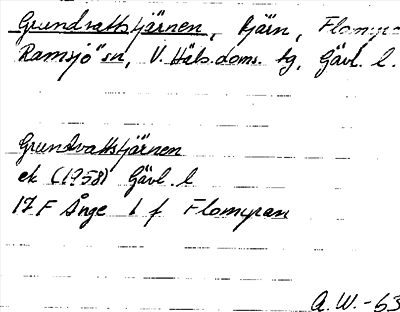 Grundvattstjärnen, tjärn, Flomyra
Ramsjö sn, V. Häls. doms. tg, Gävl. l.
Grundvattstjärnen
ek (1958) Gävl. l
17 F Ånge 1 f Flomyran
A. W. -63